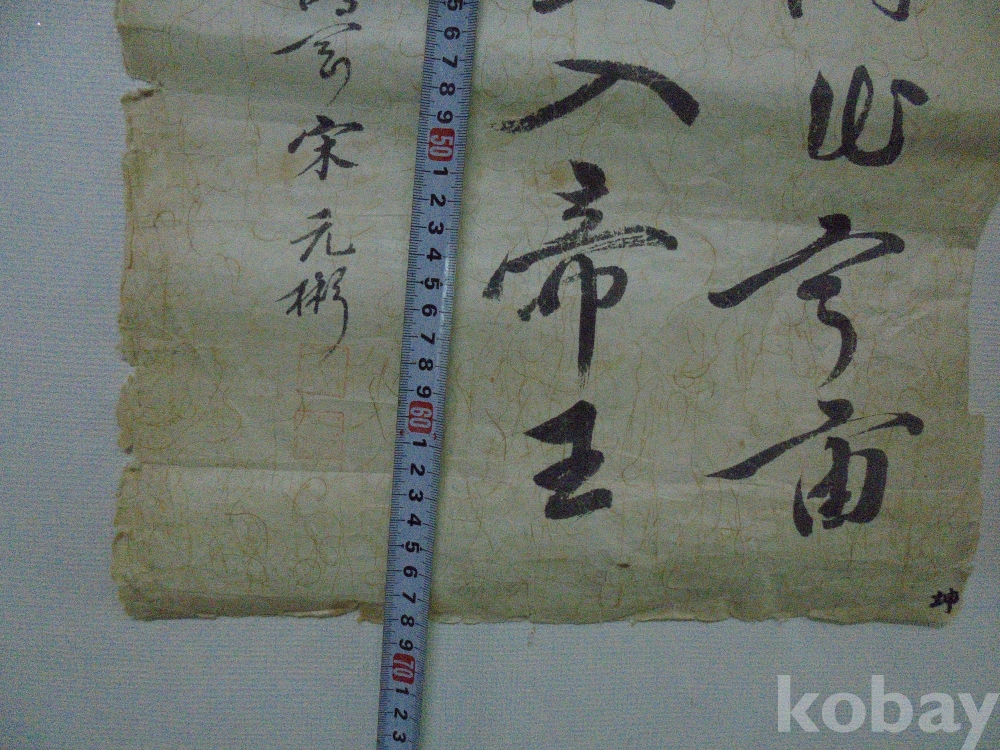 此宇宙
入帝王
宋元彬
坤
5 6 7 8 9 50 1 2 3 4 5 6 7 8 9 60 1 2 3 4 5 6 7 8 9 70 1 2 3
kobay